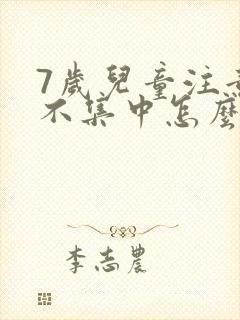 7歲兒童注意
不集中怎麼
李志農